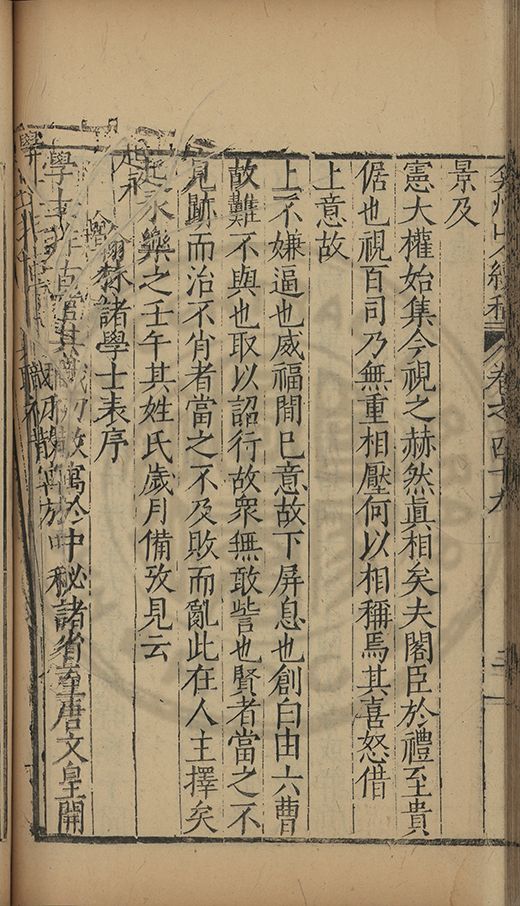 弇州山人續稿 卷之四十九
景及
憲大權始集今視之赫然真相矣夫閣臣於禮至貴
倨也視百司乃無重相壓何以相稱焉其喜怒借
上意故
上不嫌逼也威福間巳意故下屏息也創白由六曹
故難不與也取以詔行故衆無敢訾也賢者當之不
見跡而治不肖者當之不及敗而亂此在人主擇矣
起永樂之壬午其姓氏歲月備攷見云
翰林諸學士表序
學士
寓於中秘諸省至唐文皇開